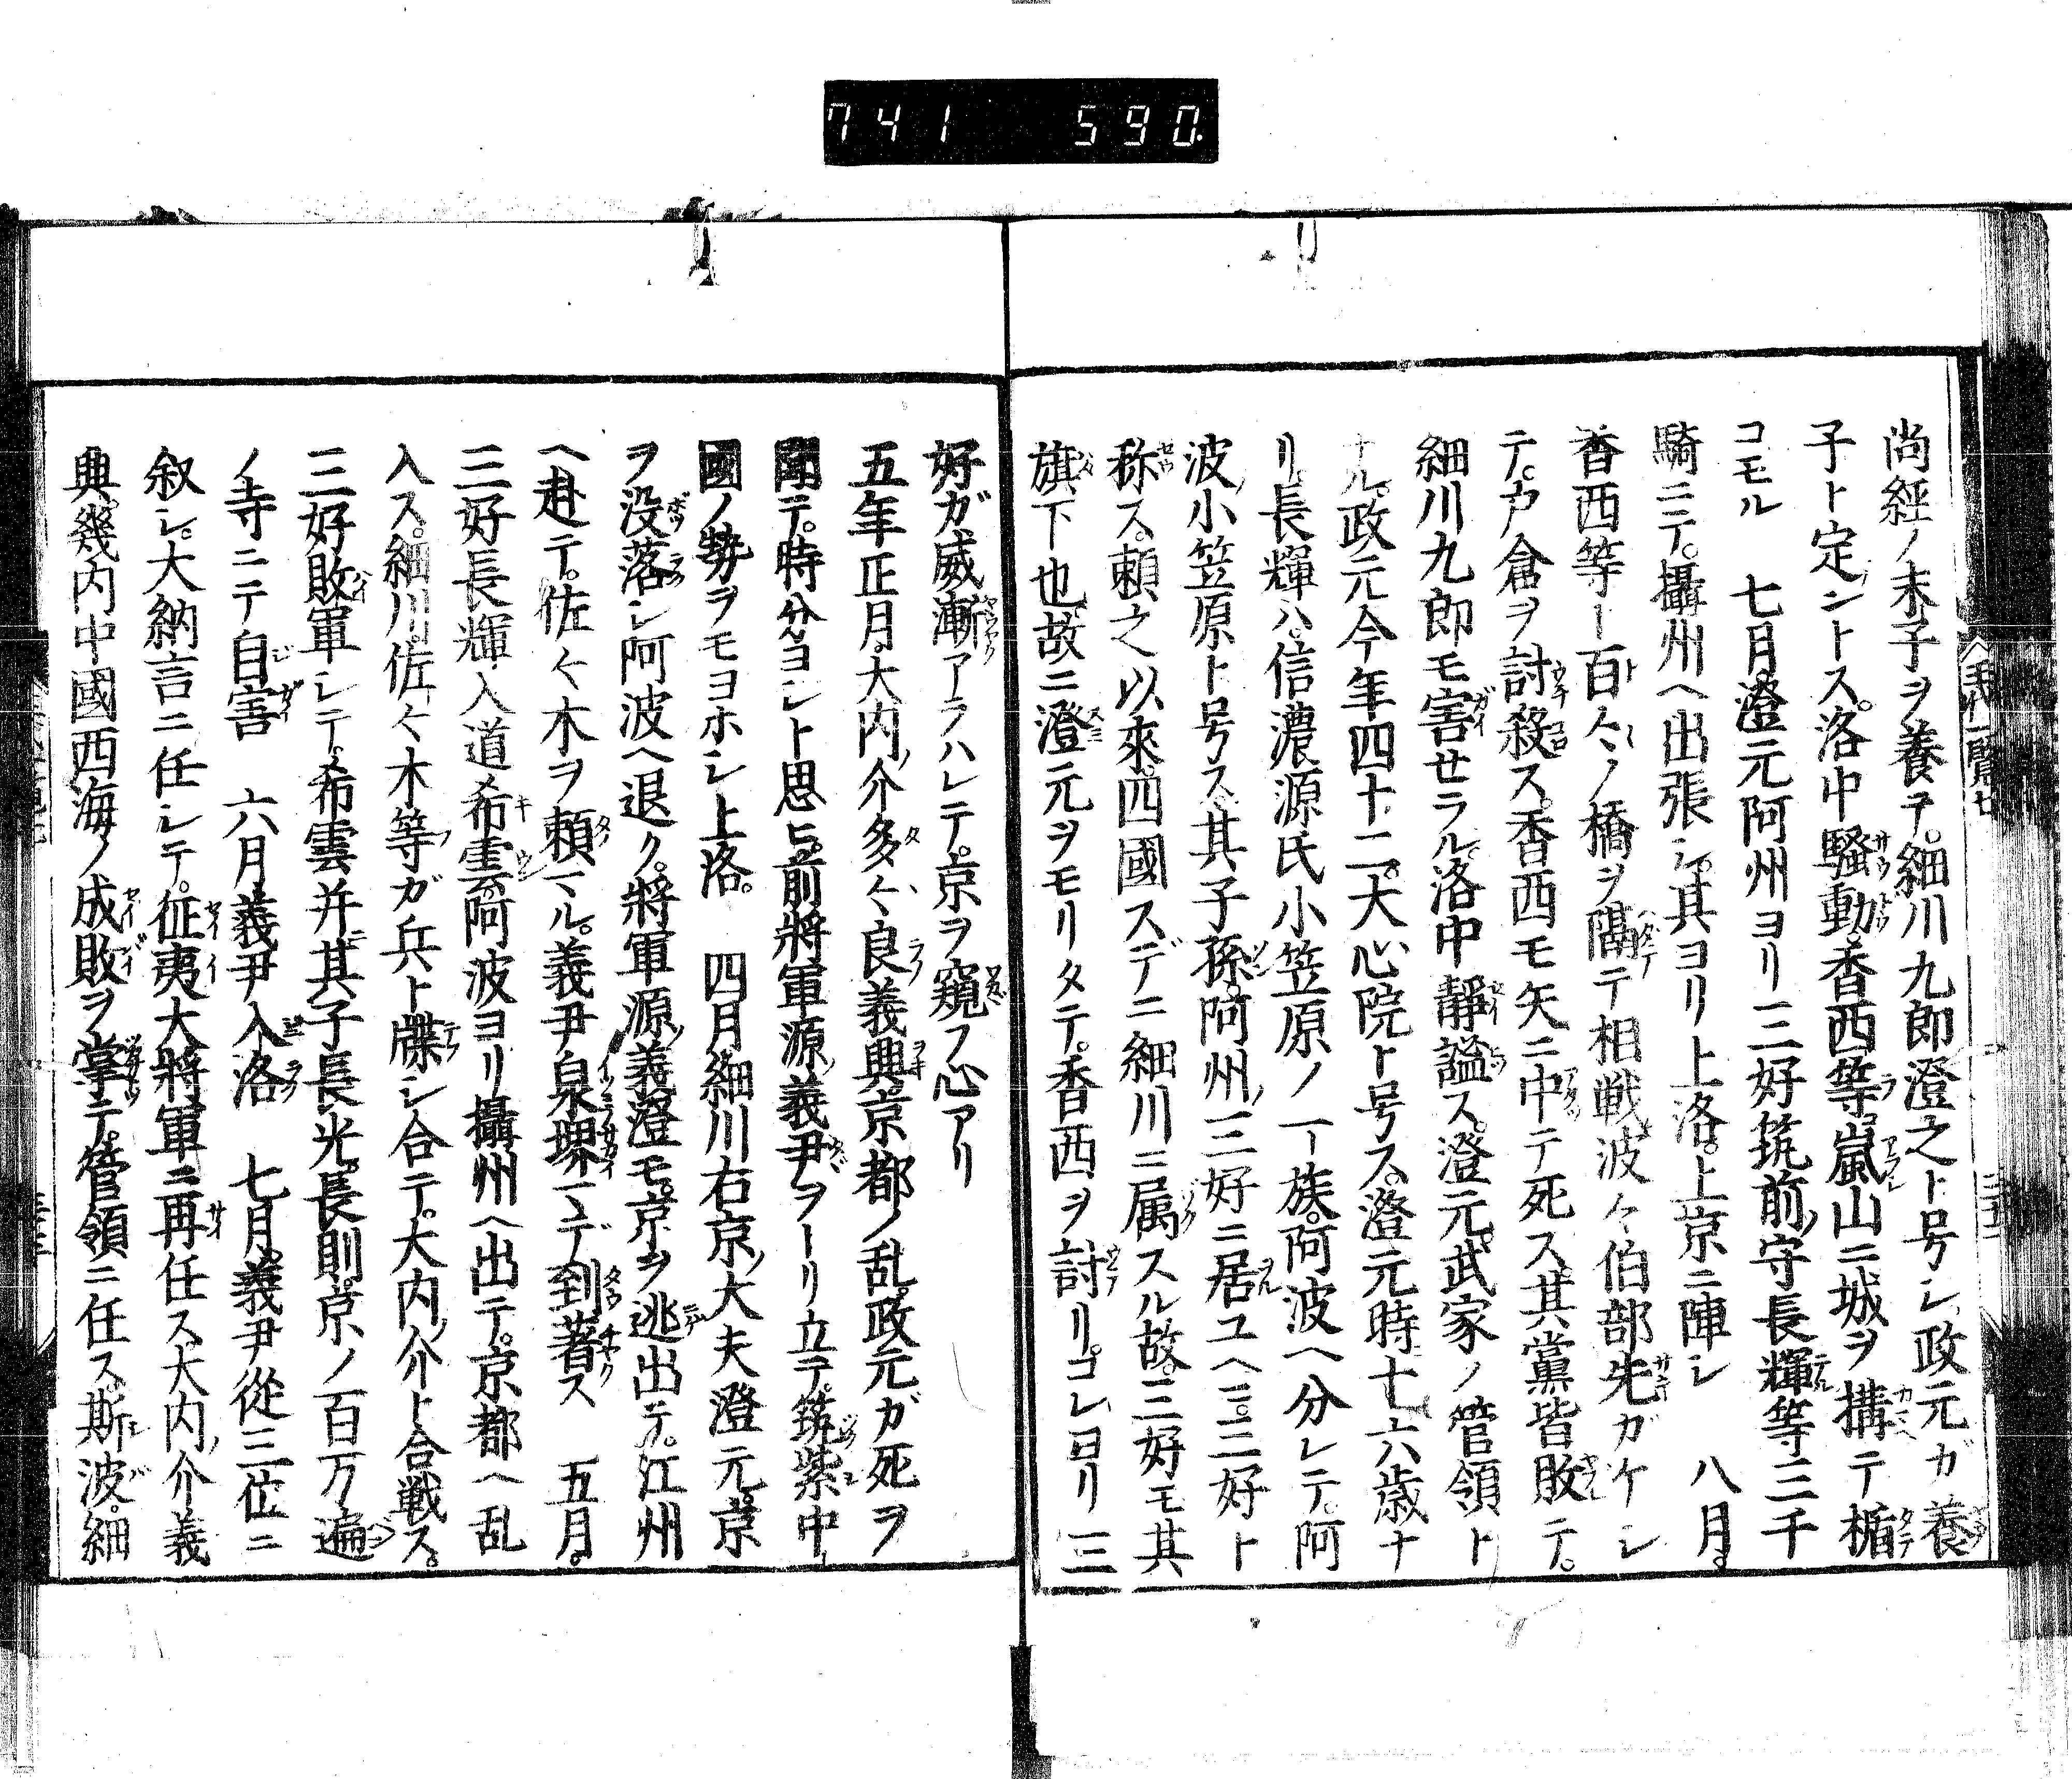 741 590
尚經ノ末子ヲ養テ。細川九郎澄之ト号シ。政元ガ養
子ト定ントス。洛中騷動。香西等嵐山ニ城ヲ搆テ楯
コモル 七月。澄元阿州ヨリ三好筑前守長輝等三千
騎ニテ。攝州ヘ出張シ。其ヨリ上洛。上京ニ陣シ 八月。
香西等ト百々ノ橋ヲ隔テ相戦。波々伯部先ガケシ
テ。戸倉ヲ討殺ス。香西モ矢ニ中テ死ス。其黨皆敗テ。
細川九郎モ害セラル。洛中靜謐ス。澄元。武家ノ管領ト
ナル。政元今年四十二。大心院ト号ス。澄元時十六歳ナ
リ。長輝ハ。信濃源氏小笠原ノ一族。阿波ヘ分レテ。阿
波小笠原ト号ス。其子孫。阿州三好ニ居ユヘニ。三好ト
称ス。頼之以來。四國スデニ細川ニ属スル故。三好モ其
旗下也。故ニ澄元ヲモリタテ。香西ヲ討リ。コレヨリ三
好ガ威漸アラハレテ。京ヲ窺フ心アリ
五年正月。大内介多々良義興。京都ノ乱。政元ガ死ヲ
聞テ。時分ヨシト思ヒ。前將軍源義尹ヲトリ立テ。筑紫中
國ノ勢ヲモヨホシ上洛。 四月。細川右京大夫澄元。京
ヲ没落シ阿波ヘ退ク。將軍源義澄モ。京ヲ逃出テ。江州
ヘ赴テ。佐々木ヲ頼マル。義尹泉堺マデ到著ス 五月。
三好長輝入道希雲。阿波ヨリ攝州ヘ出テ。京都ヘ乱
入ス。細川。佐々木等ガ兵ト牒シ合テ。大内介ト合戦ス。
三好敗軍シテ。希雲并其子長光。長則。京ノ百万遍
ノ寺ニテ自害 六月義尹入洛 七月。義尹從三位ニ
叙シ。大納言ニ任シテ。征夷大將軍ニ再任ス。大内介義
興。幾内中國西海ノ成敗ヲ掌テ。管領ニ任ス。斯波。細